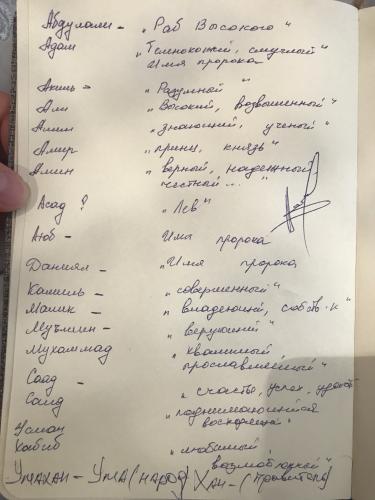 Абдулали - „Раб Высокого"
Адам „Темнокожий, смуглый"
Имя пророка
Акиль - „Разумный"
Али „Высокий, возвышенный"
Алим „знающий, ученый"
Амир „принц, князь"
Амин „верный, надежный,
честный..."
Асад ? „Лев"
Аюб - Имя пророка
Даниял - „Имя пророка
Камиль - „совершенный"
Малик - „владеющий, собств-к"
Муъмин - „верующий"
Мухаммад „хвалимый,
прославляемый"
Саад - „счастье, успех, удача"
Саид „поднимающийся
Усман восходящий"
Хабиб „любимый,
возлюбленный"
Умахан - Ума (народ) Хан - (правитель)